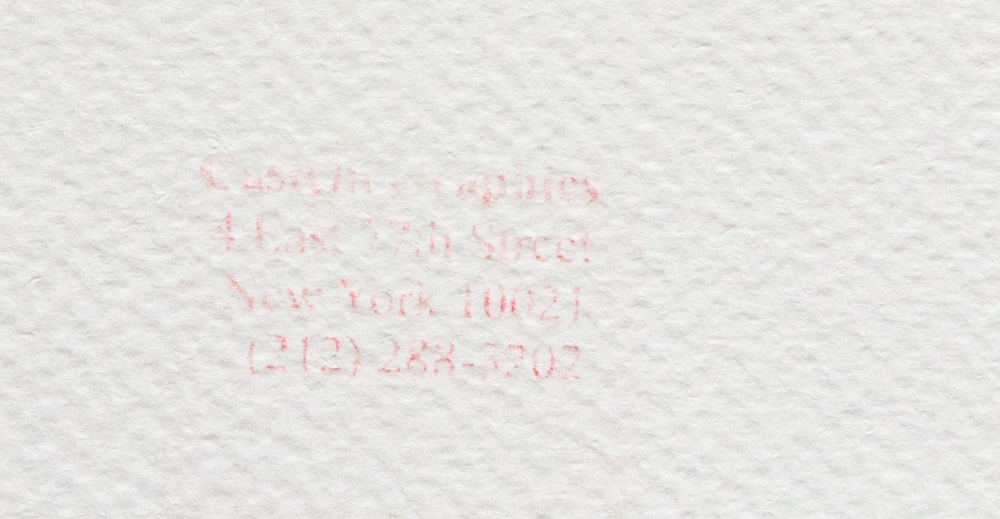 Castelli Graphics
4 East 77th Street
New York 10021
(212) 288-3202